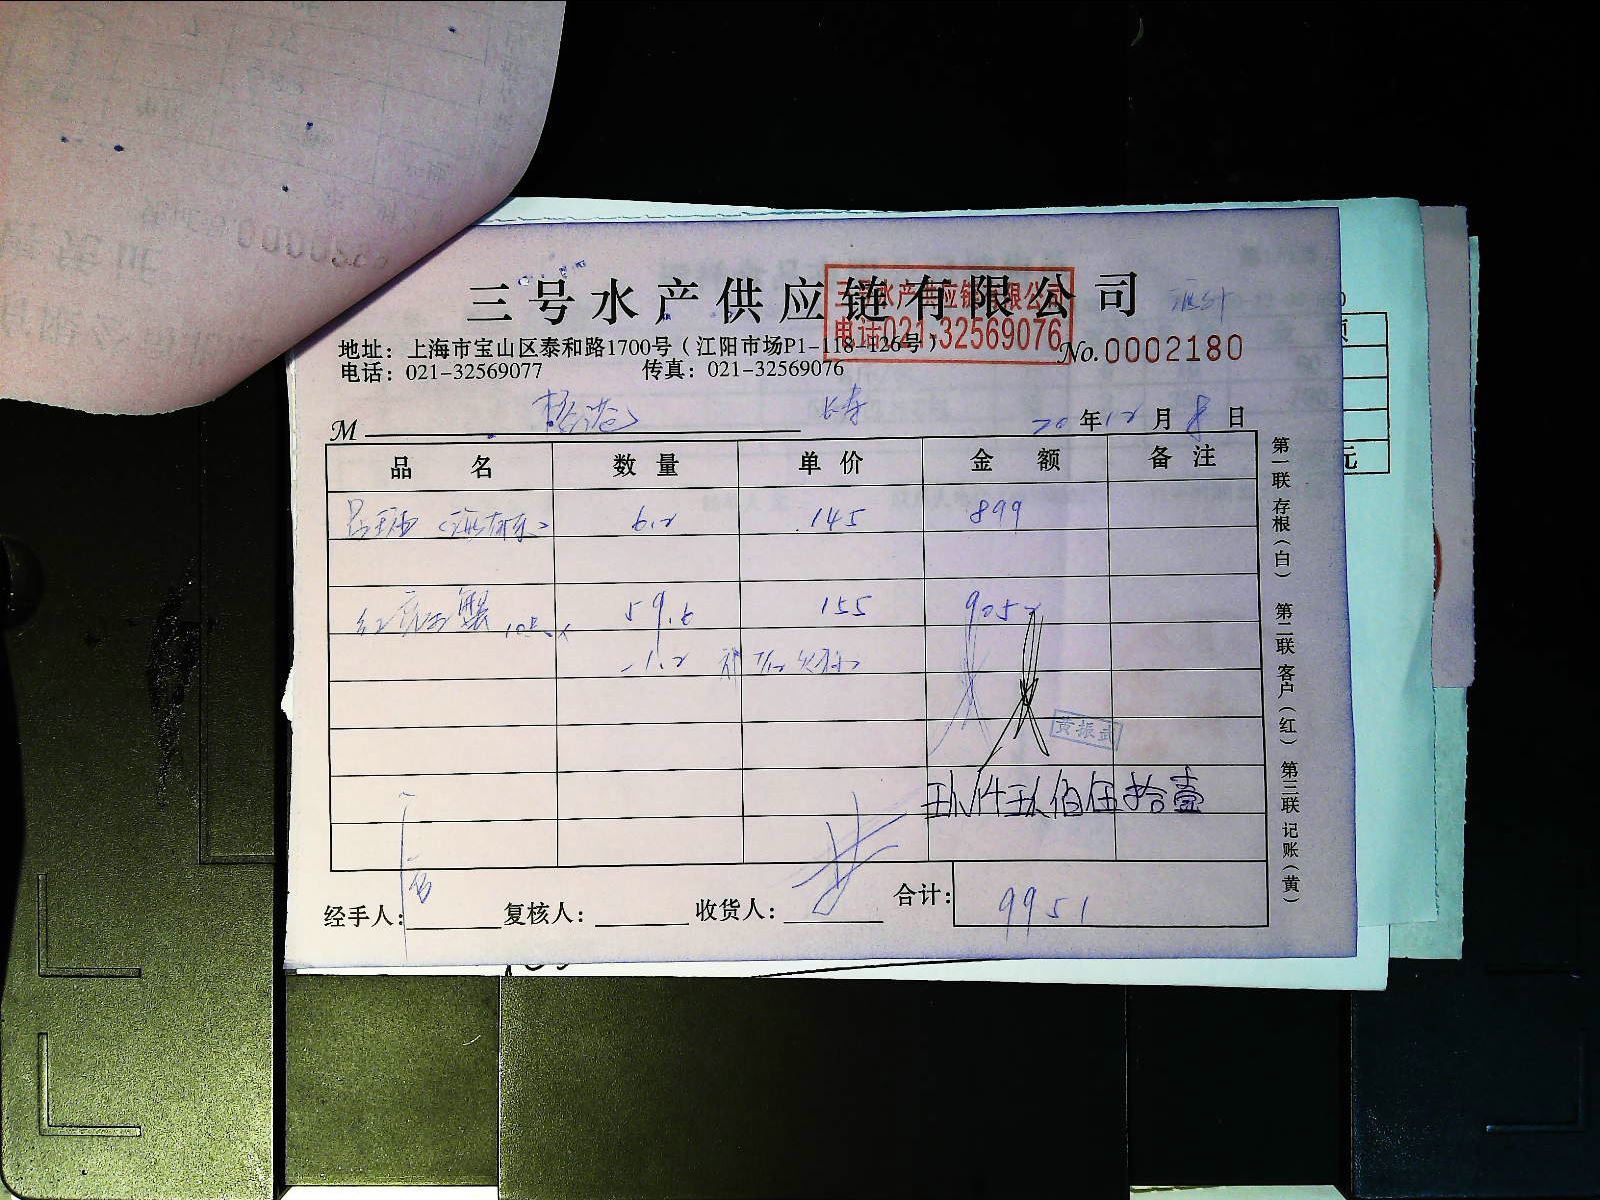 三号水产供应链有限公司
三号水产供应链有限公司
电话021-32569076
地址：上海市宝山区泰和路1700号（江阳市场P1-118-126号）
No.0002180
电话：021-32569077 传真：021-32569076
M 长寿 20年12月8日
品名 数量 单价 金额 备注
6.2 145 899
蟹 59.6 155 9052
-1.2
黄振武
玖仟玖佰伍拾壹
经手人： 复核人： 收货人： 合计： 9951
第一联 存根（白） 第二联 客户（红） 第三联 记账（黄）
元